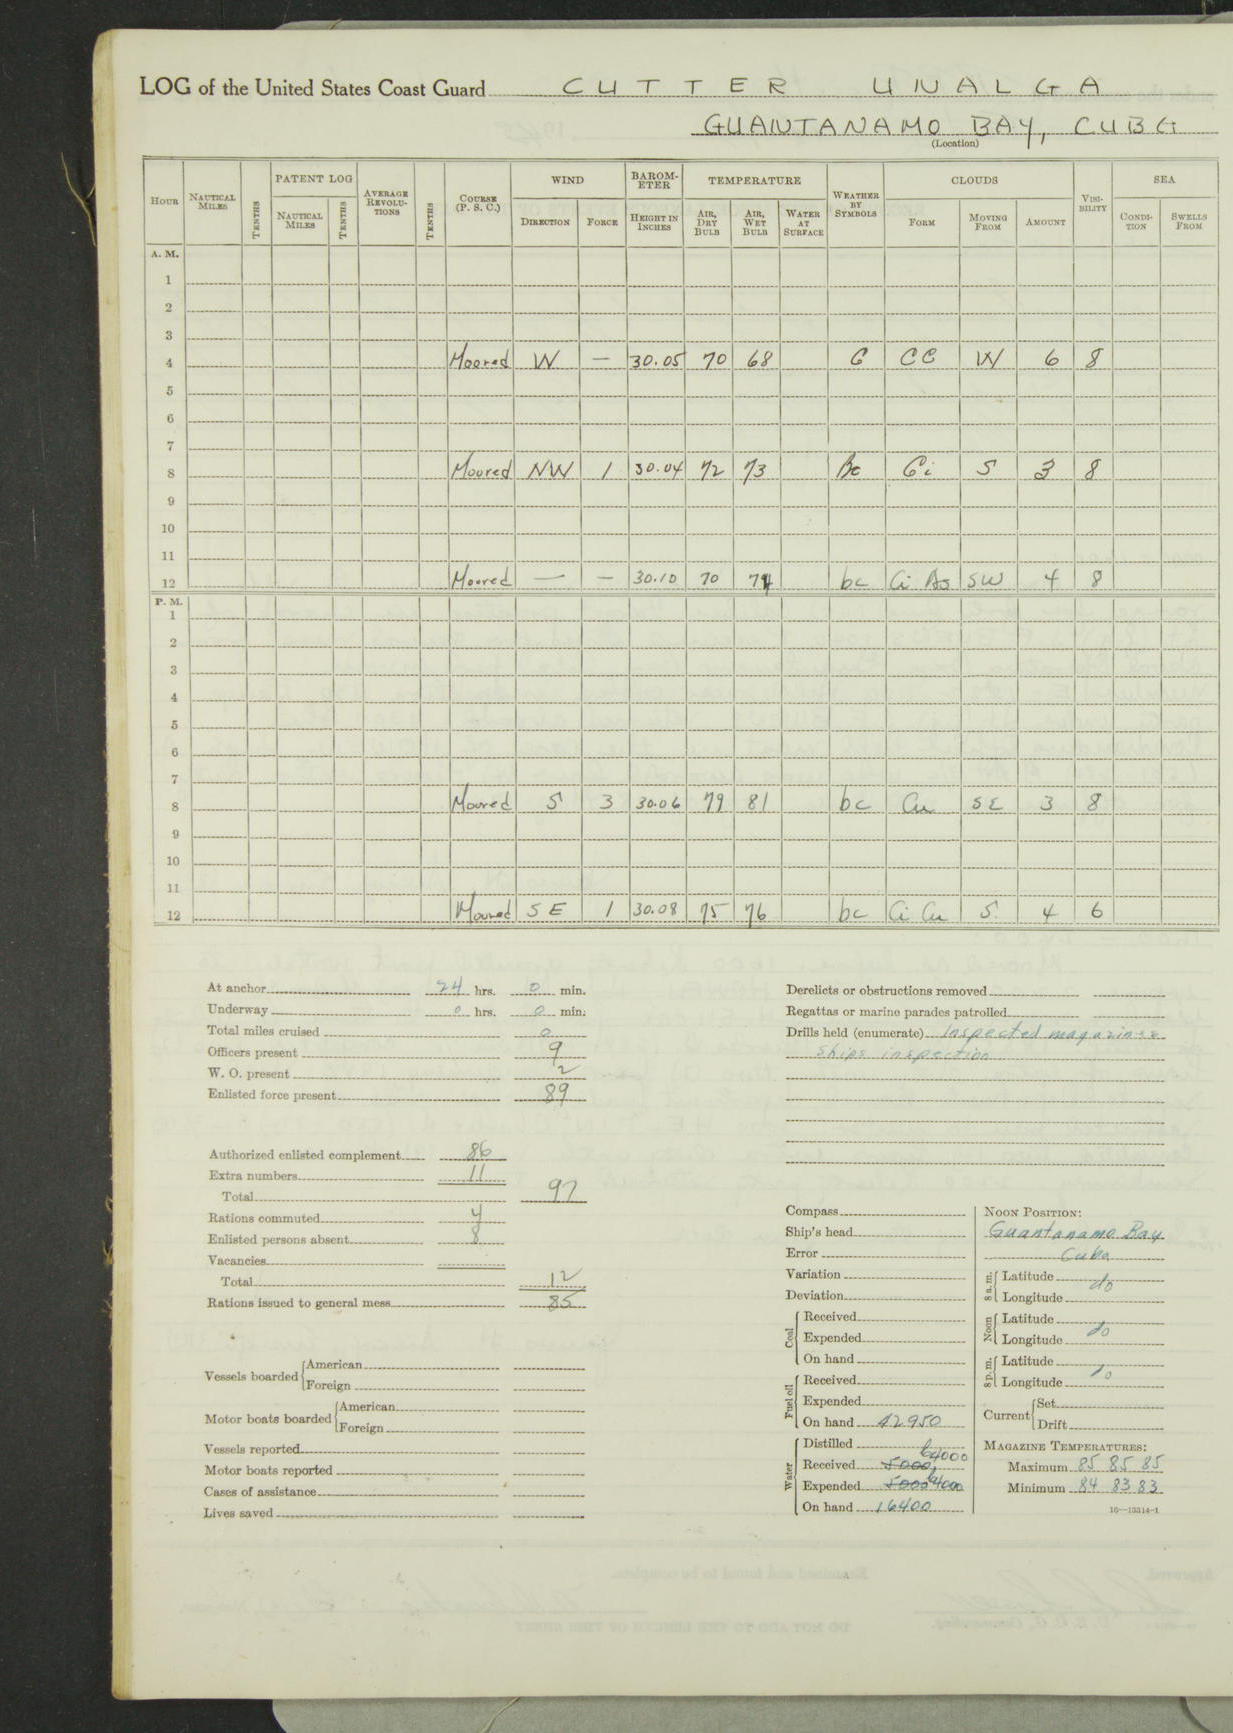 LOG of the United States Coast Guard CUTTER UNALGA
GUANTANAMO BAY, CUBA
(Location)
HOUR NAUTICAL MILES TENTHS PATENT LOG NAUTICAL MILES TENTHS AVERAGE REVOLUTIONS TENTHS COURSE (P. S. C.) WIND DIRECTION FORCE BAROMETER HEIGHT IN INCHES TEMPERATURE AIR, DRY BULB AIR, WET BULB WATER AT SURFACE WEATHER BY SYMBOLS CLOUDS FORM MOVING FROM AMOUNT VISIBILITY SEA CONDITION SWELLS FROM
A. M.
1
2
3
4 Moored W — 30.05 70 68 C CC W 6 8
5
6
7
8 Moored NW 1 30.04 72 73 Bc Ci S 3 8
9
10
11
12 Moored — — 30.10 70 74 bc Ci As SW 4 8
P. M.
1
2
3
4
5
6
7
8 Moored S 3 30.06 79 81 bc Cu SE 3 8
9
10
11
12 Moored SE 1 30.08 75 76 bc Ci Cu S 4 6
At anchor 24 hrs. 0 min.
Underway 0 hrs. 0 min.
Total miles cruised 0
Officers present 9
W. O. present 2
Enlisted force present 89
Authorized enlisted complement 86
Extra numbers 11
Total 97
Rations commuted 4
Enlisted persons absent 8
Vacancies
Total 12
Rations issued to general mess 85
Vessels boarded American
Foreign
Motor boats boarded American
Foreign
Vessels reported
Motor boats reported
Cases of assistance
Lives saved
Derelicts or obstructions removed
Regattas or marine parades patrolled
Drills held (enumerate) Inspected magazines
ships inspection
Compass
Ship's head
Error
Variation
Deviation
Coal Received
Expended
On hand
Fuel oil Received
Expended
On hand 42950
Water Distilled
Received 5000 64000
Expended 5000 6400
On hand 16400
NOON POSITION:
Guantanamo Bay
Cuba
8 a.m. Latitude do
Longitude
Noon Latitude do
Longitude
8 p.m. Latitude do
Longitude
Current Set
Drift
MAGAZINE TEMPERATURES:
Maximum 85 85 85
Minimum 84 83 83
16—13314-1